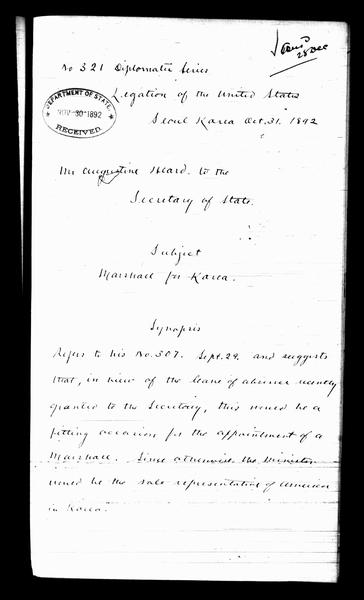 Ans'd
28 Dec
No 321 Diplomatic Series
Legation of the United States
Seoul Korea Oct. 31. 1892
DEPARTMENT OF STATE
NOV 30 1892
RECEIVED
Mr Augustine Heard. to the
Secretary of State.
Subject
Marshall for Korea.
Synopsis
Refers to his No. 307. Sept. 29. and suggests
that, in view of the leave of absence recently
granted to the Secretary, this would be a
fitting occasion for the appointment of a
Marshall. Since otherwise the Minister
would be the sole representative of America
in Korea.